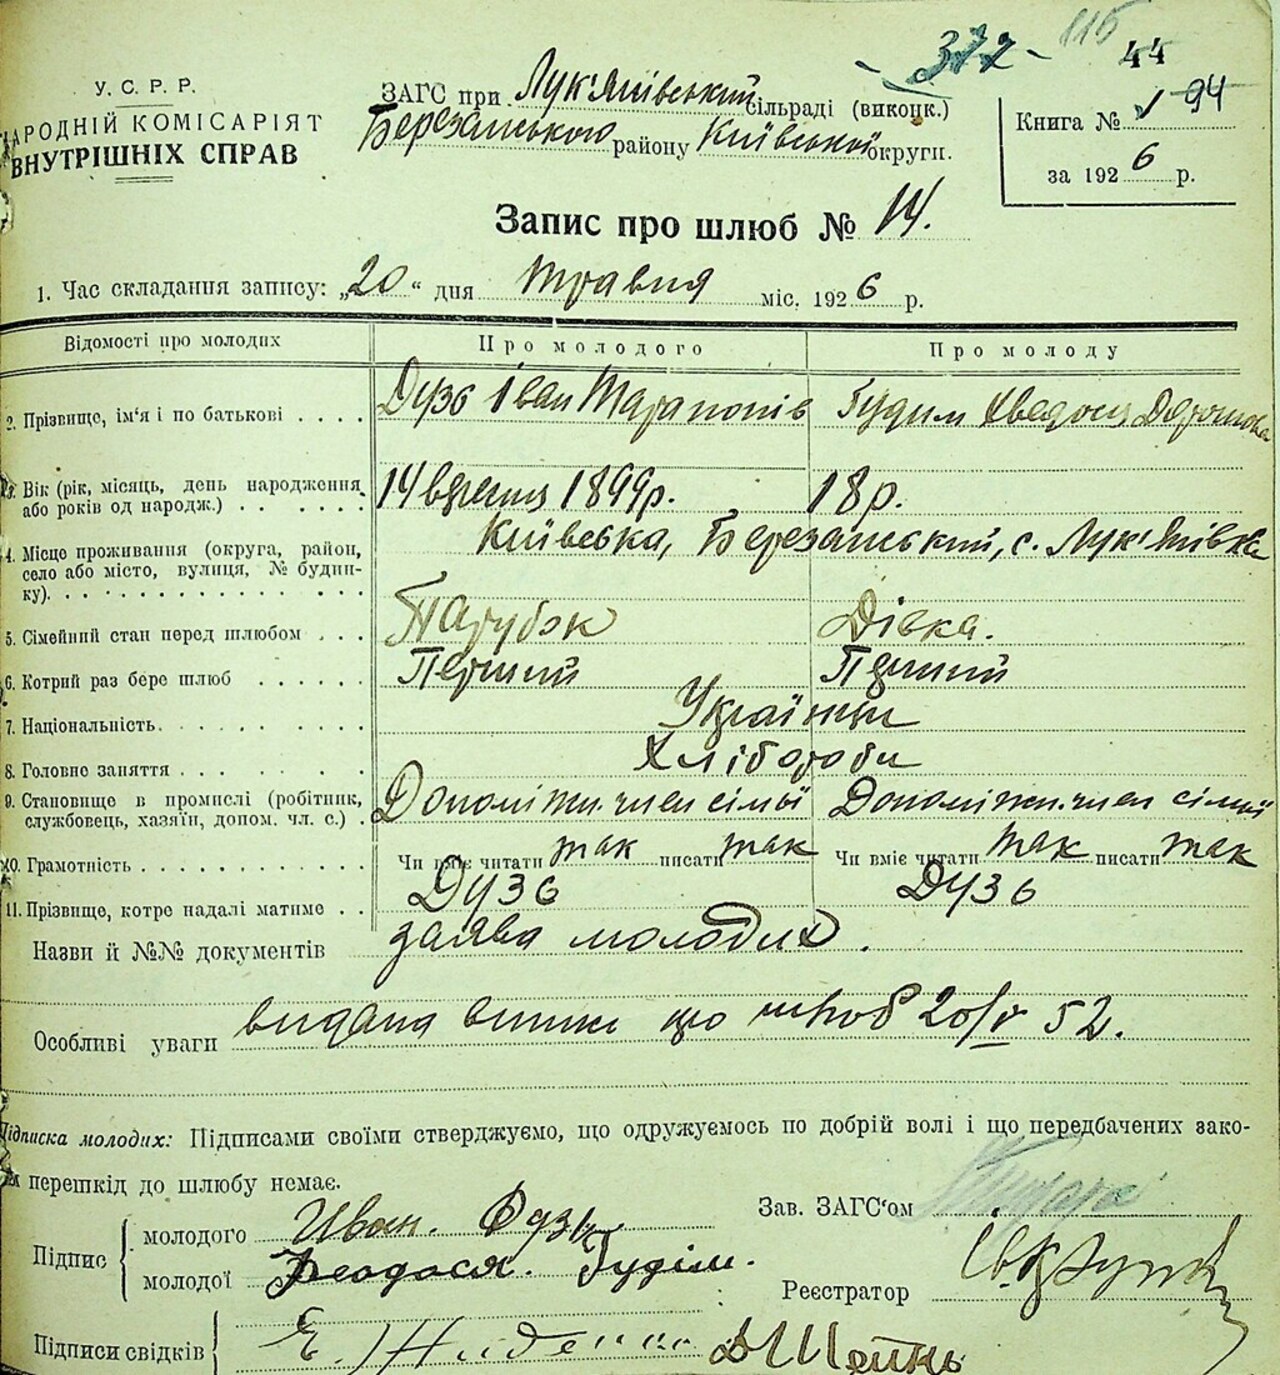 - 372 - 115 44
У. С. Р. Р.
НАРОДНІЙ КОМІСАРІЯТ
ВНУТРІШНІХ СПРАВ
ЗАГС при Лук'янівський сільраді (виконк.)
Березанського району Київської округи.
Книга № 94
за 1926 р.
Запис про шлюб № 14.
1. Час складання запису: „20“ дня травня міс. 1926 р.
Відомості про молодих Про молодого Про молоду
2. Прізвище, ім'я і по батькові . . . . Дузь Іван Тарапонів Гудим Хведося
3. Вік (рік, місяць, день народження 14 вересня 1899р. 18 р.
або років од народж.) . . . . . .
4. Місце проживання (округа, район, Київська, Березанський, с. Лук'янівка
село або місто, вулиця, № будин-
ку). . . . . . . . . . . . . . .
5. Сімейний стан перед шлюбом . . . Парубок Дівка.
6. Котрий раз бере шлюб . . . . . . Перший Перший
7. Національність. . . . . . . . . . Українці
8. Головне заняття . . . . . . . . Хлібороби
9. Становище в промислі (робітник, Допоміжн. член сімьї Допоміжн. член сімьї
службовець, хазяїн, допом. чл. с.) .
10. Грамотність . . . . . . . . . . . Чи вміє читати так писати так Чи вміє читати так писати так
11. Прізвище, котре надалі матиме . . Дузь Дузь
Назви й №№ документів заява молодих .
Особливі уваги видана випис про шлюб 20/V 52.
Підписка молодих: Підписами своїми стверджуємо, що одружуємось по добрій волі і що передбачених зако-
ом перешкід до шлюбу немає.
Зав. ЗАГС'ом
Підпис молодого Иван. Дузь
молодої Феодося. Гуділ.
Реєстратор
Підписи свідків Є.